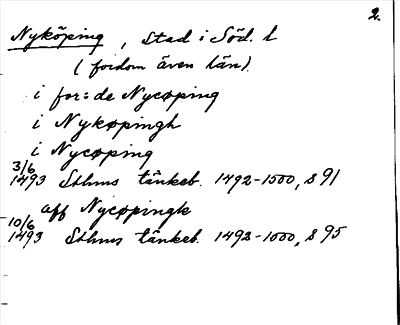 2.
Nyköping, Stad i Söd. l
(fordom även län).
i for: de Nycøping
i Nykøpingh
i Nycøping
3/6
1493 Sthms tänkeb. 1492-1500, s 91
aff Nycøpingk
10/6
1493 Sthms tänkeb. 1492-1500, s 95